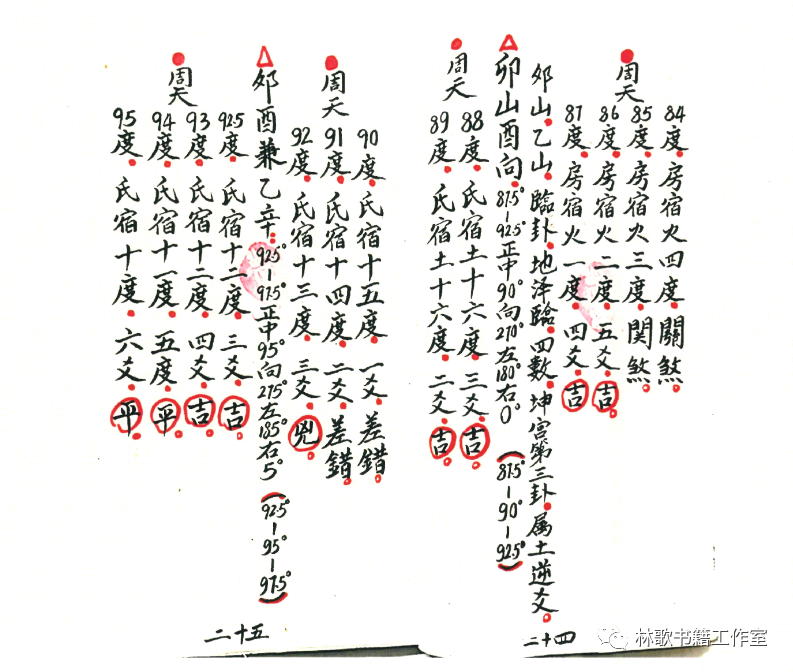 周天
84度。房宿火四度。關煞。
85度。房宿火三度。関煞。
86度。房宿火二度。五爻。吉。
87度。房宿火一度。四爻。吉。
郊山。乙山。臨卦。地泽臨。四數。坤宫第三卦。属土逆爻。
卯山酉向。87.5°—92.5°正中90°向270°左180°右0°（87.5°—90°—92.5°）
周天
88度。氐宿土十六度。三爻。吉。
89度。氐宿土十六度。二爻。吉。
二十四
周天
90度。氐宿十五度。一爻。差錯。
91度。氐宿十四度。二爻。差錯。
92度。氐宿十三度。三爻。兇。
郊酉兼乙辛：92.5°—97.5°正中95°向275°左185°右5°（92.5°—95°—97.5°）
周天
92.5度。氐宿十二度。三爻。吉。
93度。氐宿十二度。四爻。吉。
94度。氐宿十一度。五度。平。
95度。氐宿十度。六爻。平。
二十五
林歌书籍工作室